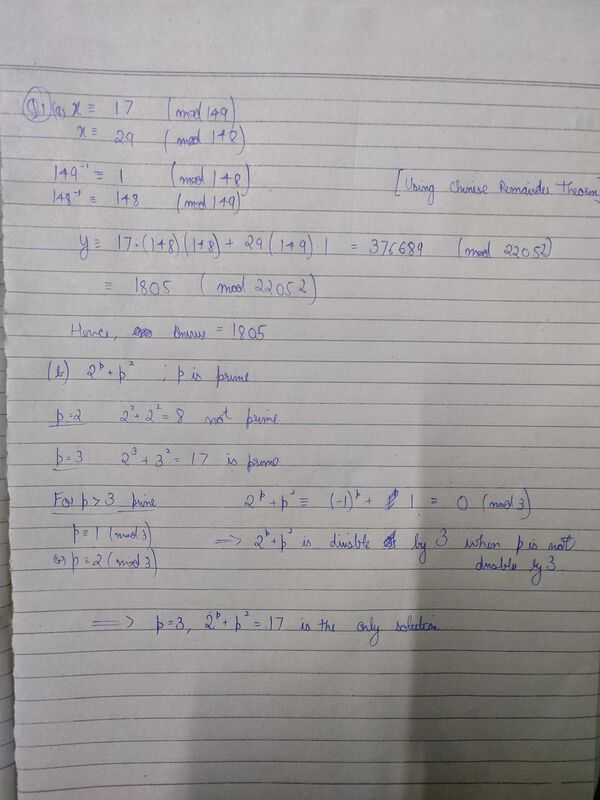 Q1 (a) x ≡ 17 (mod 149)
x ≡ 29 (mod 148)
149⁻¹ ≡ 1 (mod 148)
148⁻¹ ≡ 148 (mod 149) [Using Chinese Remainder Theorem]
y ≡ 17·(148)(148) + 29(149)·1 = 376689 (mod 22052)
≡ 1805 (mod 22052)
Hence, = 1805
(b) 2ᵖ + p² ; p is prime
p=2 2² + 2² = 8 not prime
p=3 2³ + 3² = 17 is prime
For p > 3 prime 2ᵖ + p² ≡ (-1)ᵖ + 1 ≡ 0 (mod 3)
p ≡ 1 (mod 3) ⟹ 2ᵖ + p² is divisible by 3 when p is not
or p ≡ 2 (mod 3) divisible by 3
⟹ p=3, 2ᵖ + p² = 17 is the only solution